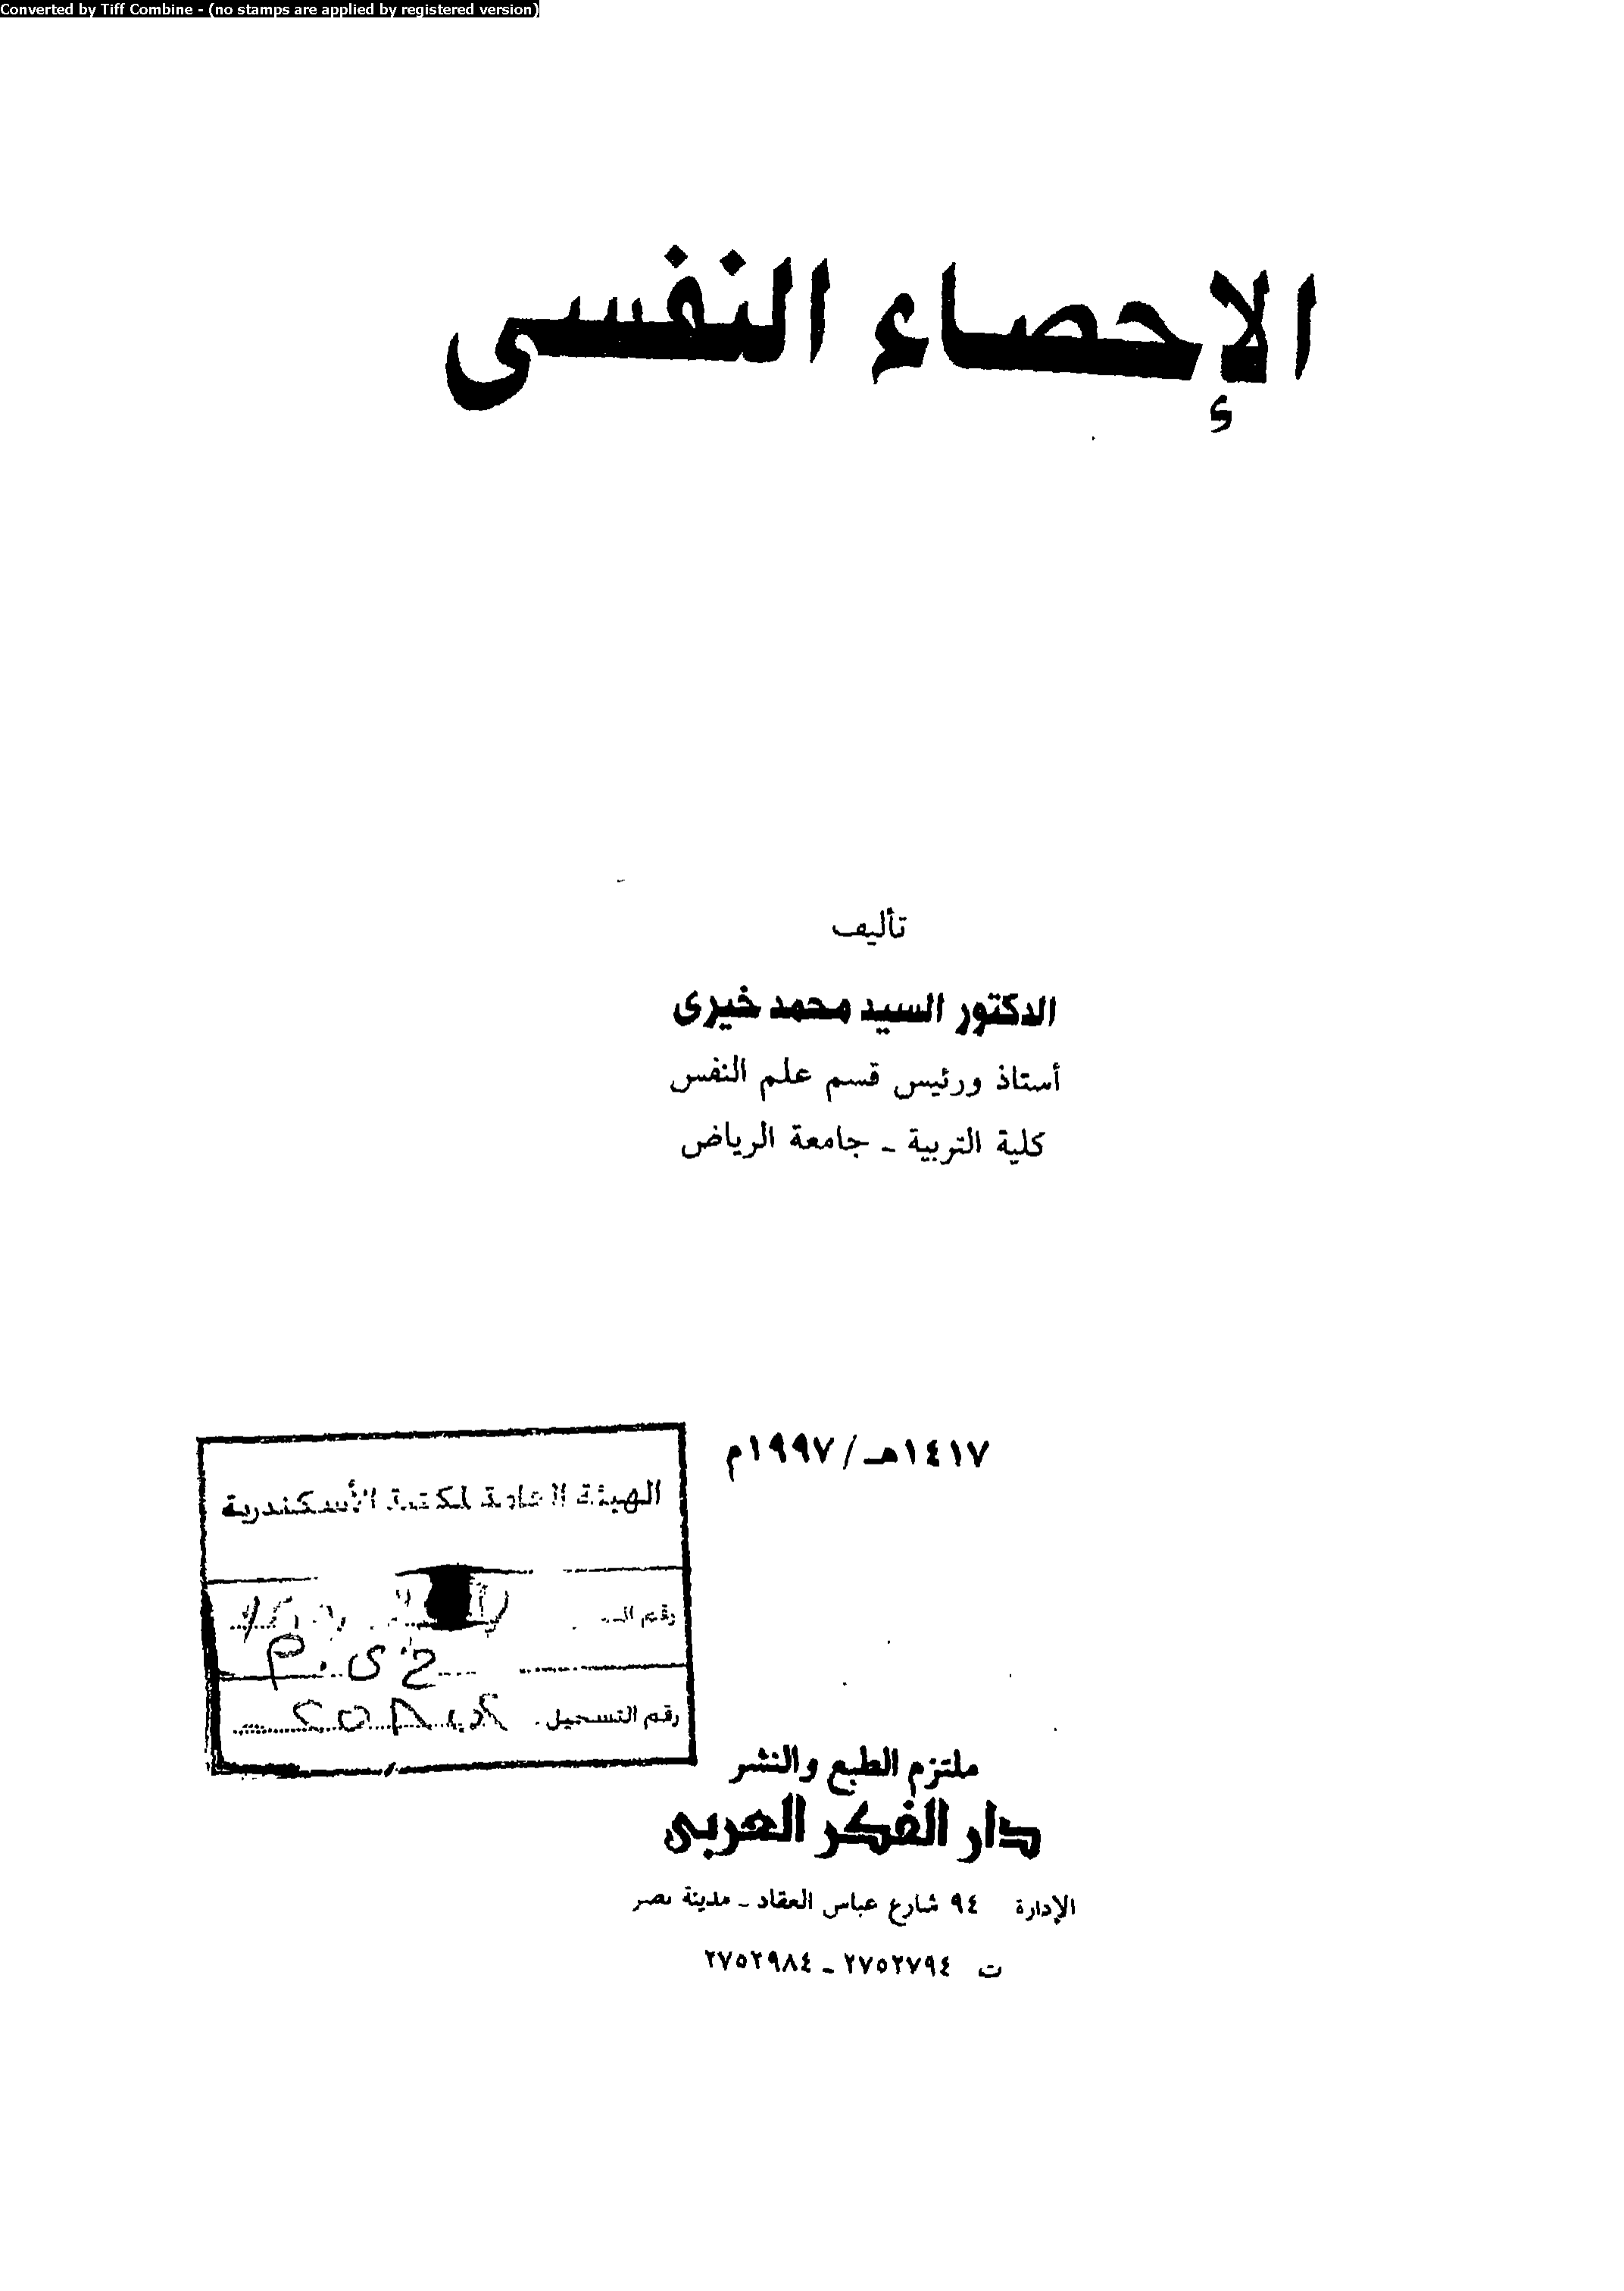 Converted by Tiff Combine - (no stamps are applied by registered version)
الإحصاء النفسى
تأليف
الدكتور السيد محمد خيرى
أستاذ ورئيس قسم علم النفس
كلية التربية ـ جامعة الرياض
١٤١٧هـ/ ١٩٩٧م
الهيئة العامة لمكتبة الأسكندرية
رقم
رقم التسجيل
ملتزم الطبع والنشر
دار الفكر العربى
الإدارة ٩٤ شارع عباس العقاد ـ مدينة نصر
ت ٢٧٥٢٧٩٤ ـ ٢٧٥٢٩٨٤